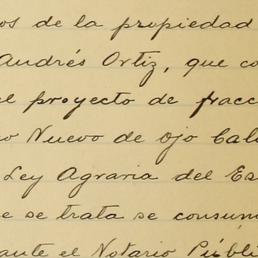 os de la propiedad
Andrés Ortiz, que co
el proyecto de fracc
o Nuevo de Ojo Cali
Ley Agraria del Es
e se trata se consum
ante el Notario Públi